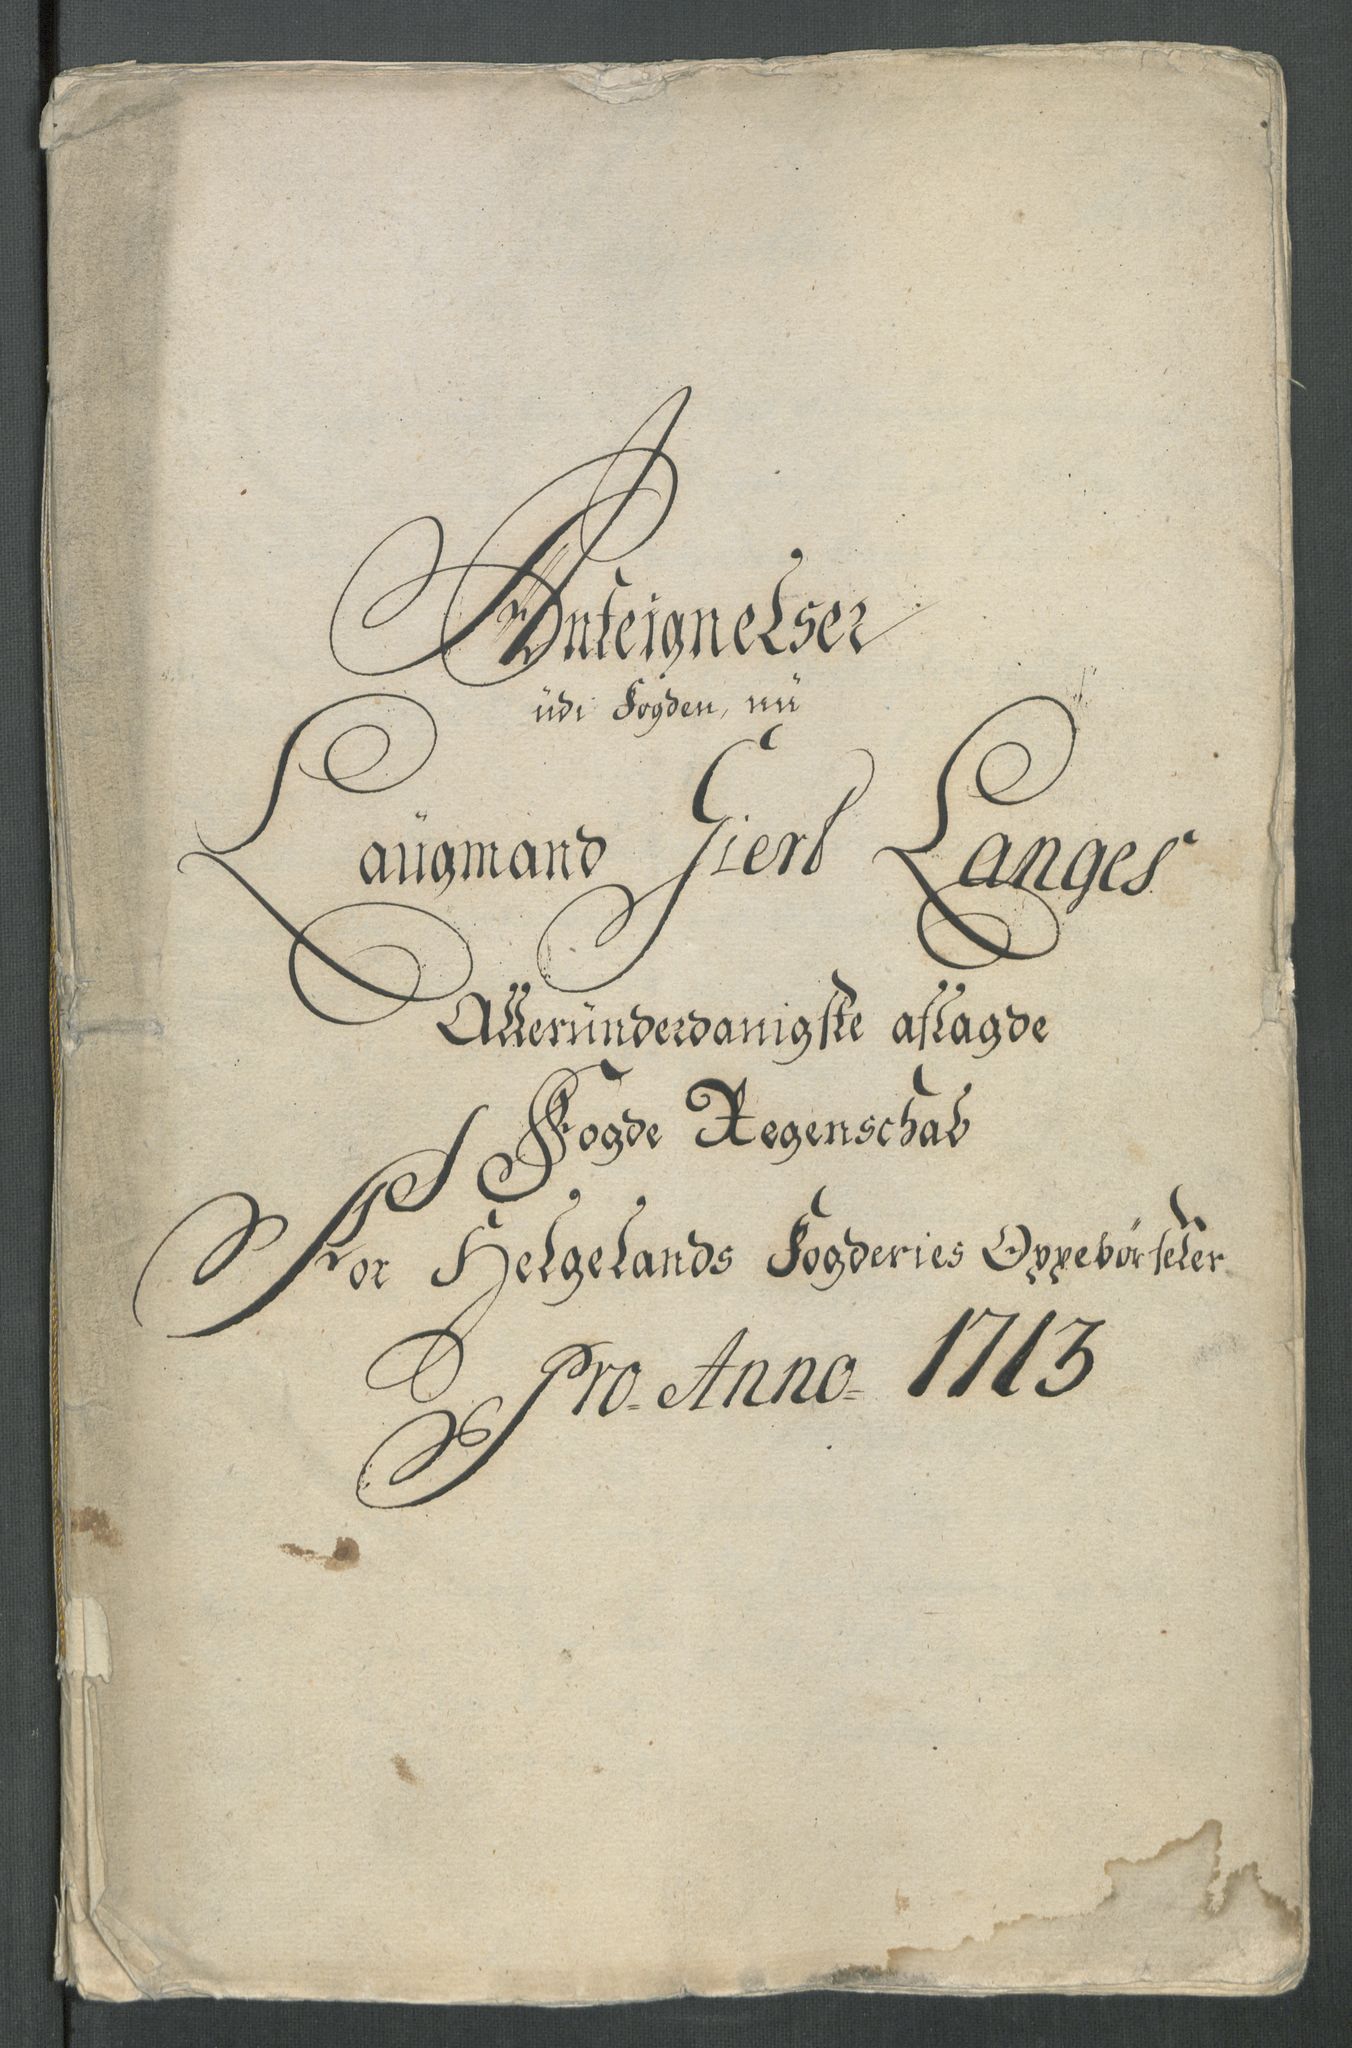 Anteignelser
üdi Fogden, nü
Laügmand Giert Langes
Alleründerdanigste aflagde
Fogde Regenschab
For Helgelands Fogderies Oppebörseler
Pro Anno 1713